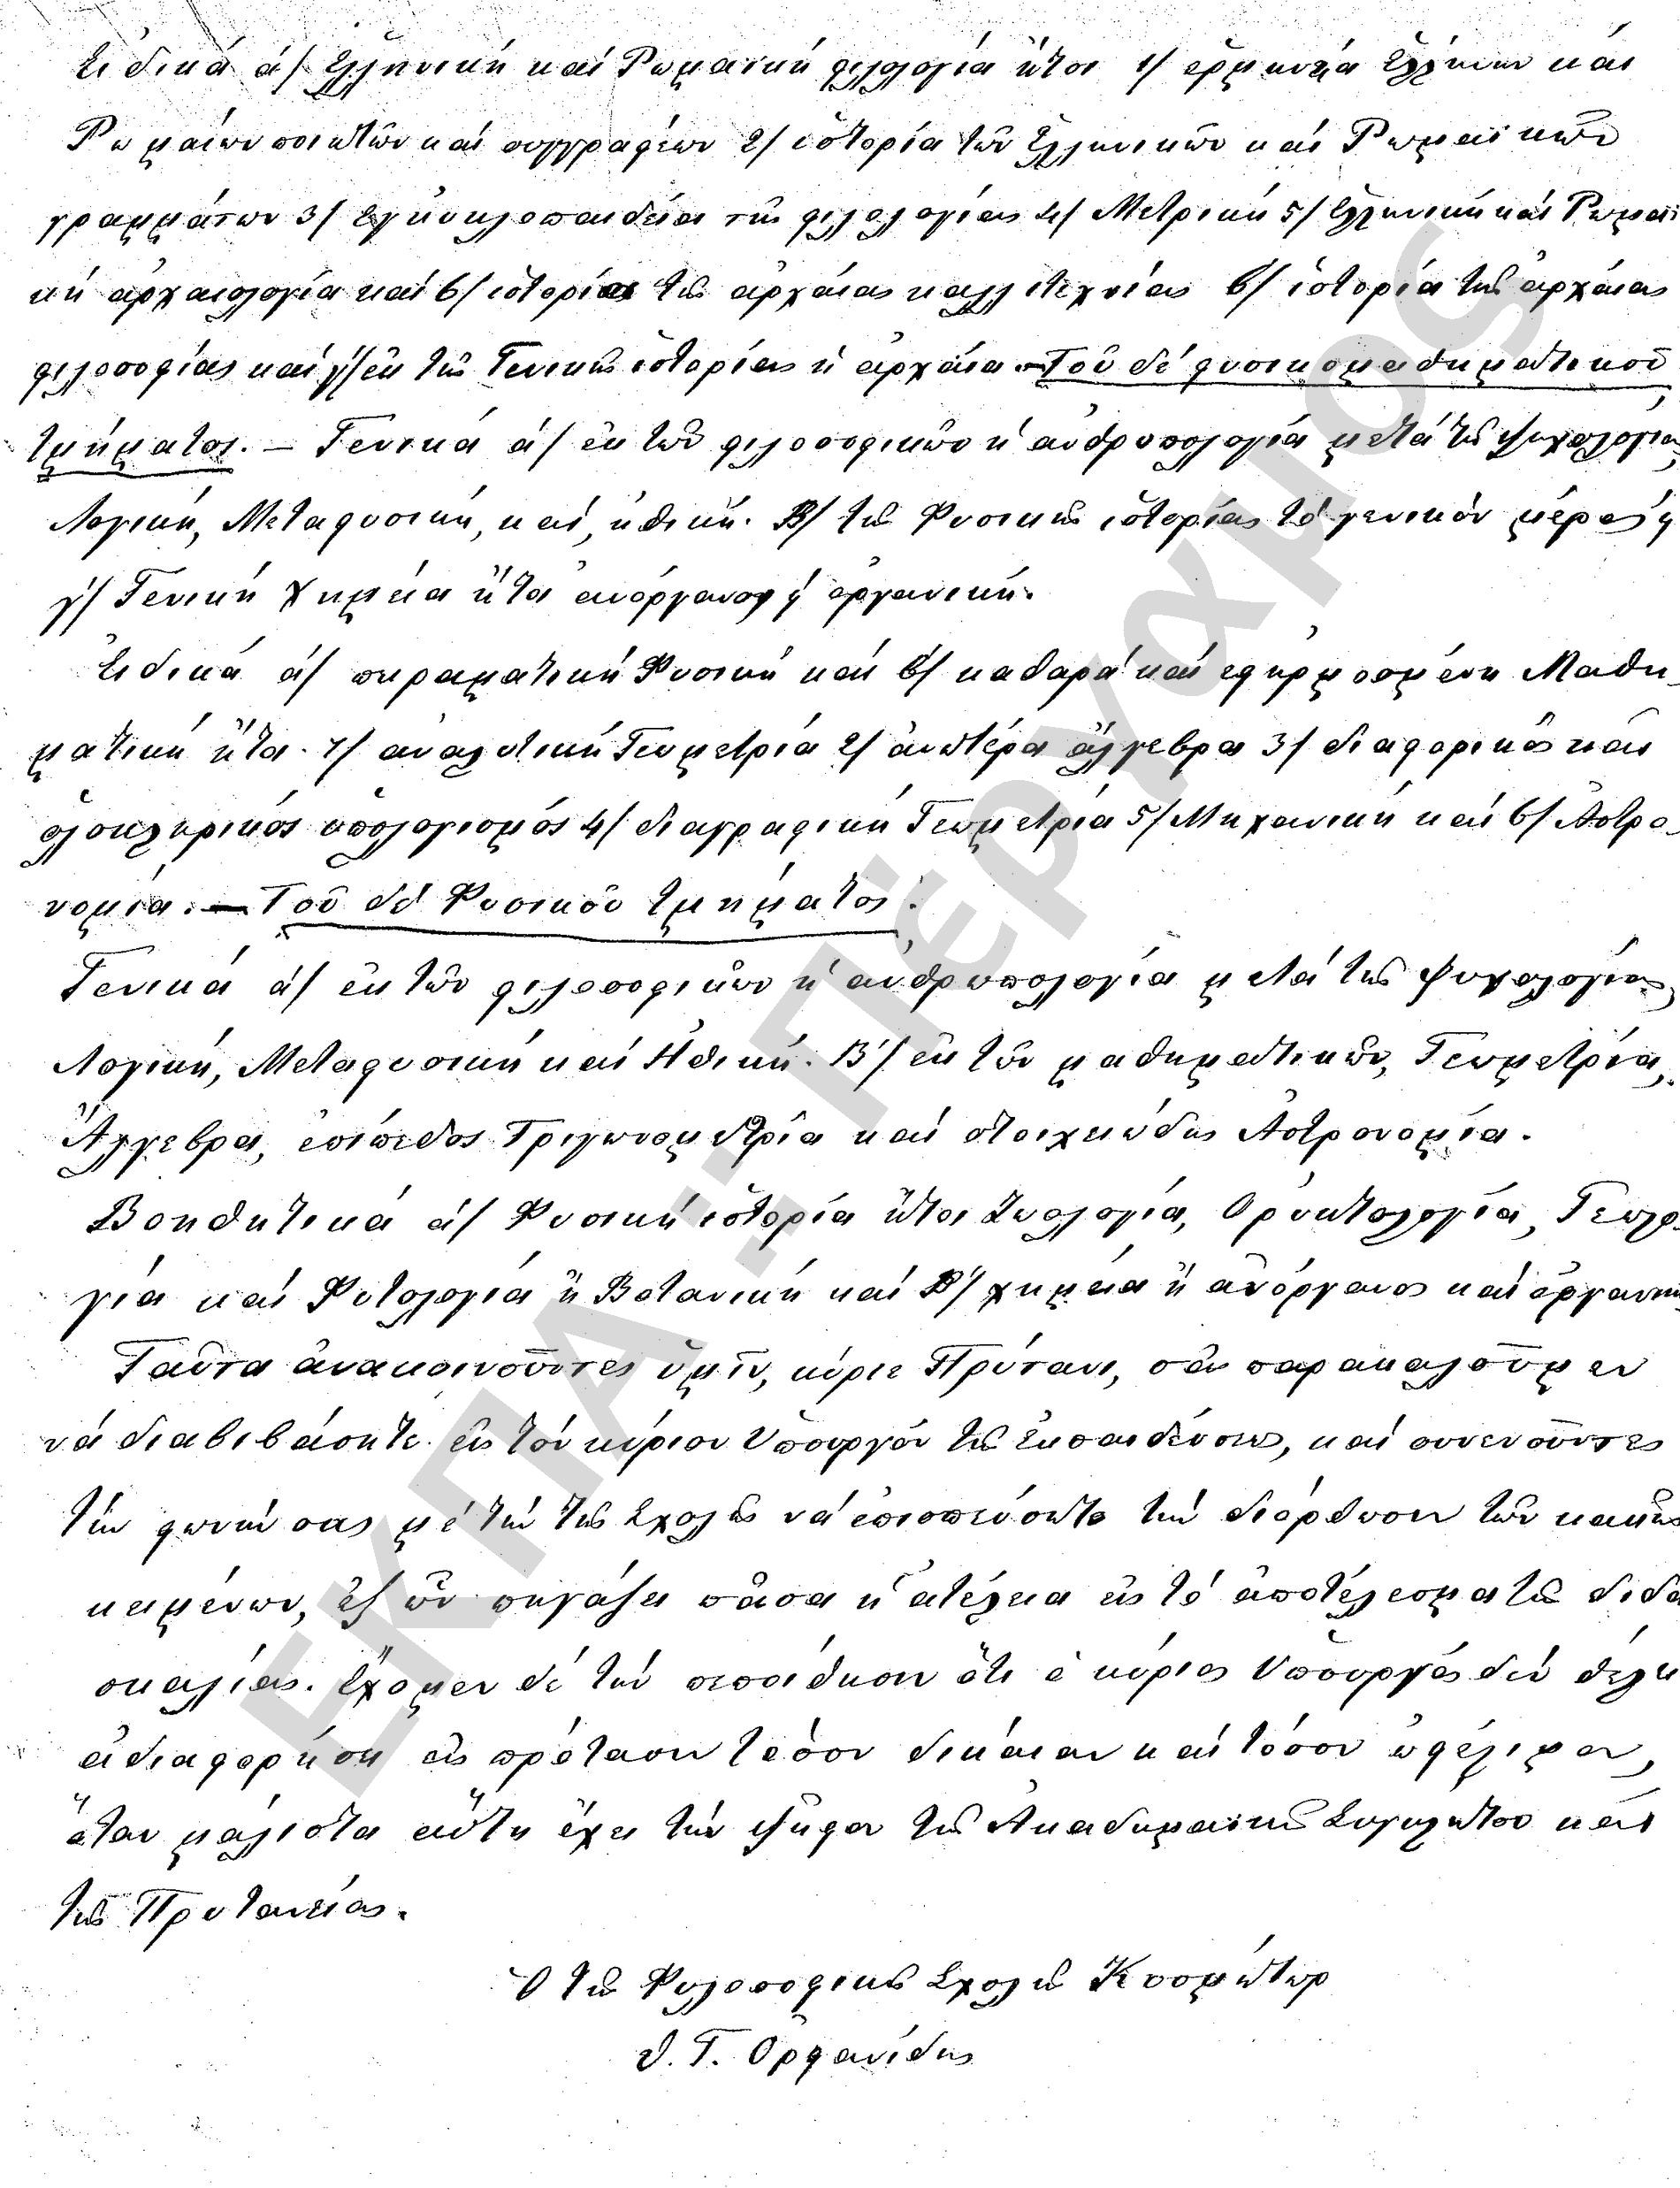 Εἰδικά ά/ Ἑλληνική καί Ρωμαϊκή φιλολογία ἤτοι 1/ ἑρμηνεία Ἑλλήνων καί
Ρωμαίων ποιητῶν καί συγγραφέων 2/ ἱστορία τῶν Ἑλληνικῶν καί Ρωμαϊκῶν
γραμμάτων 3/ Ἐγκυκλοπαιδεία τῆς φιλολογίας 4/ Μετρική 5/ Ἑλληνική καί Ρωμαϊ
κή ἀρχαιολογία καί 6/ ἱστορία τῆς ἀρχαίας καλλιτεχνίας β/ ἱστορία τῆς ἀρχαίας
φιλοσοφίας καί γ/ ἐκ τῆς Γενικῆς ἱστορίας ἡ ἀρχαία — Τοῦ δέ φυσικομαθηματικοῦ
τμήματος. — Γενικά ά/ ἐκ τῶν φιλοσοφικῶν ἡ ἀνθρωπολογία μετά τῆς ψυχολογίας,
Λογική, Μεταφυσική, καί ἠθική. Β/ τῆς Φυσικῆς ἱστορίας τό γενικόν μέρος ϥ
γ/ Γενική Χημεία ἤτοι ἀνόργανος ϥ ὀργανική.
Εἰδικά ά/ πειραματική Φυσική καί β/ καθαρά καί ἐφηρμοσμένη Μαθη_
ματική ἤτοι 1/ ἀναλυτική Γεωμετρία 2/ ἀνωτέρα ἄλγεβρα 3/ διαφορικός καί
ὁλοκληρικός ὑπολογισμός 4/ διαγραφική Γεωμετρία 5/ Μηχανική καί 6/ Ἀστρο_
νομία. — Τοῦ δέ Φυσικοῦ τμήματος.
Γενικά ά/ ἐκ τῶν φιλοσοφικῶν ἡ ἀνθρωπολογία μετά τῆς ψυχολογίας,
Λογική, Μεταφυσική καί Ηθική. Β/ ἐκ τῶν μαθηματικῶν, Γεωμετρία,
Ἄλγεβρα, ἐπίπεδος Τριγωνομετρία καί στοιχειώδης Ἀστρονομία.
Βοηθητικά ά/ Φυσική ἱστορία ἤτοι Ζωολογία, Ορυκτολογία, Γεωλο_
γία καί Φυτολογία ἤ Βοτανική καί Β/ χημεία ἡ ἀνόργανος καί ὀργανική
Ταῦτα ἀνακοινοῦντες ὑμῖν, κύριε Πρύτανι, σᾶς παρακαλοῦμεν
νά διαβιβάσητε εἰς τόν κύριον Υπουργόν τῆς Ἐκπαιδεύσεως, καί συνενοῦντες
τήν φωνήν σας μέ τήν τῆς Σχολῆς νά ἐπισπεύσητε τήν διόρθωσιν τῶν κακῶς
κειμένων, ἐξ ὧν πηγάζει πᾶσα ἡ ἀτέλεια εἰς τό ἀποτέλεσμα τῆς διδα
σκαλίας. Ἔχομεν δέ τήν πεποίθησιν ὅτι ὁ κύριος Υπουργός δέν θέλει
ἀδιαφορήσει εἰς πρότασιν τόσον δικαίαν καί τόσον ὠφέλιμον,
ὅταν μάλιστα αὕτη ἔχει τήν ψῆφον τῆς Ἀκαδημαϊκῆς Συγκλήτου καί
τῆς Πρυτανείας.
Ὁ τῆς Φιλοσοφικῆς Σχολῆς Κοσμήτωρ
Θ. Γ. Ορφανίδης
ΕΚΠΑ - ΠΕΡΓΑΜΟΣ